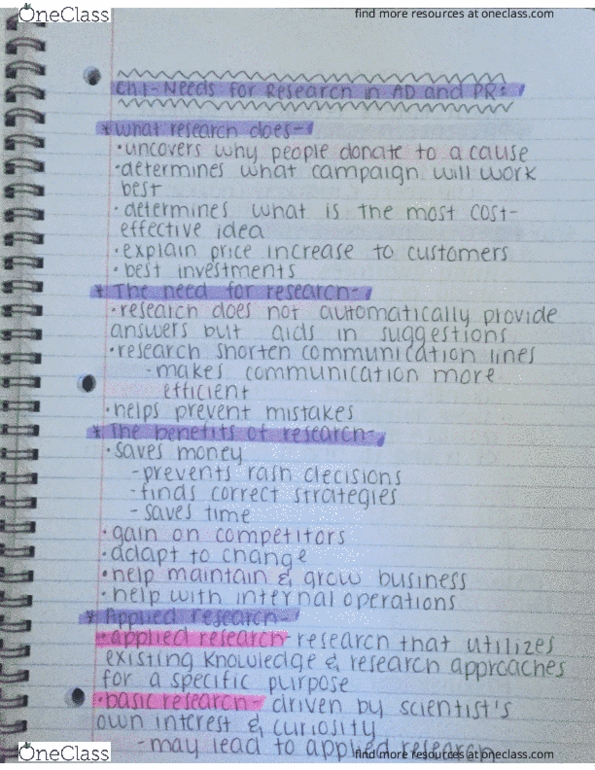 OneClass
find more resources at oneclass.com
Ch.1- Needs for Research in AD and PR:
* What research does-
• uncovers why people donate to a cause
• determines what campaign will work
best
• determines what is the most cost-
effective idea
• explain price increase to customers
• best investments
* The need for research-
• research does not automatically provide
answers but aids in suggestions
• research shorten communication lines
- makes communication more
efficient
• helps prevent mistakes
* The benefits of research-
• saves money
- prevents rash decisions
- finds correct strategies
- saves time
• gain on competitors
• adapt to change
• help maintain & grow business
• help with internal operations
* Applied research-
• applied research- research that utilizes
existing knowledge & research approaches
for a specific purpose
• basic research- driven by scientist's
own interest & curiosity
- may lead to applied research
OneClass
find more resources at oneclass.com